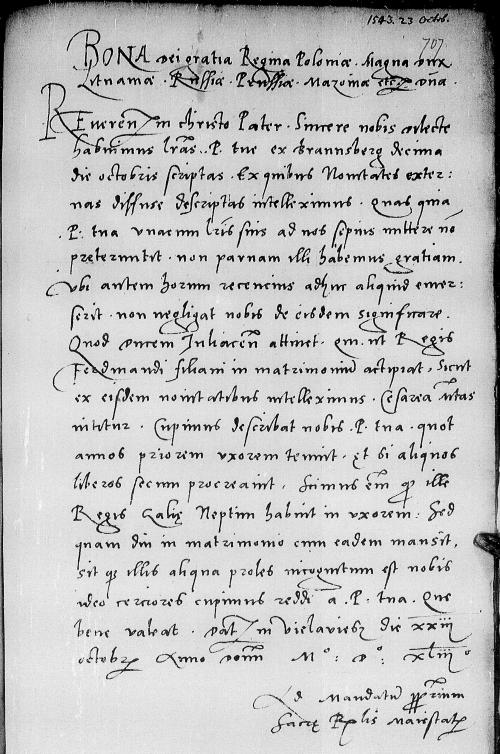 1543. 23 Octob.
707.
BONA Dei gratia Regina Poloniæ. Magna Dux
Lithuaniæ. Russiæ. Prussiæ. Mazoviæ etcz Dña.
Reverenz in christo Pater. Sincere nobis dilecte
habuimus lr̃as. P. tue ex Braunsberg decima
die octobris scriptas. Ex quibus Novitates exter:
nas diffuse descriptas intelleximus. quas quia
.P. tua unacum lr̃is suis ad nos sepius mittere nõ
pretermittit. non parvam illi habemus gratiam.
Ubi autem horum recencius adhuc aliquid emer:
serit. non negligat nobis de eisdem significare.
Quod Ducem Juliaceñ attinet. qm̃. ut Regis
Ferdinandi filiam in matrimoniũ accipiat, sicut
ex eisdem novitatibus intelleximus. Cesarea M̃tas
nititur. Cupimus describat nobis .P. tua. quot
annos priorem uxorem tenuit. Et si aliquos
liberos secum procreavit. Scimus em̃ qd ille
Regis Galię Neptim habuit in uxorem. Sed
quam diu in matrimonio cum eadem mansit,
sit qz illis aliqua proles incognitum est nobis
ideo cerciores cupimus reddi a .P. tua. Que
bene valeat. Datz in Vielaviesz die xxiij
octobrz Anno Domi M°: D°: xliij°
Ad Mandatũ pprium
Sacrę Rglis Maiestatz